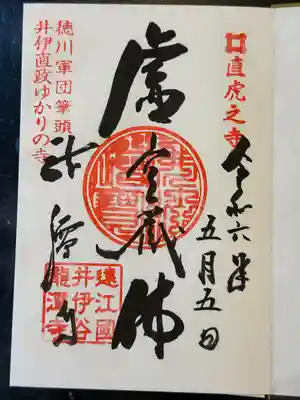 直虎之寺
令和六年
五月五日
虚空蔵佛
徳川軍団筆頭
井伊直政ゆかりの寺
龍潭寺
遠江國
井伊谷
龍潭寺